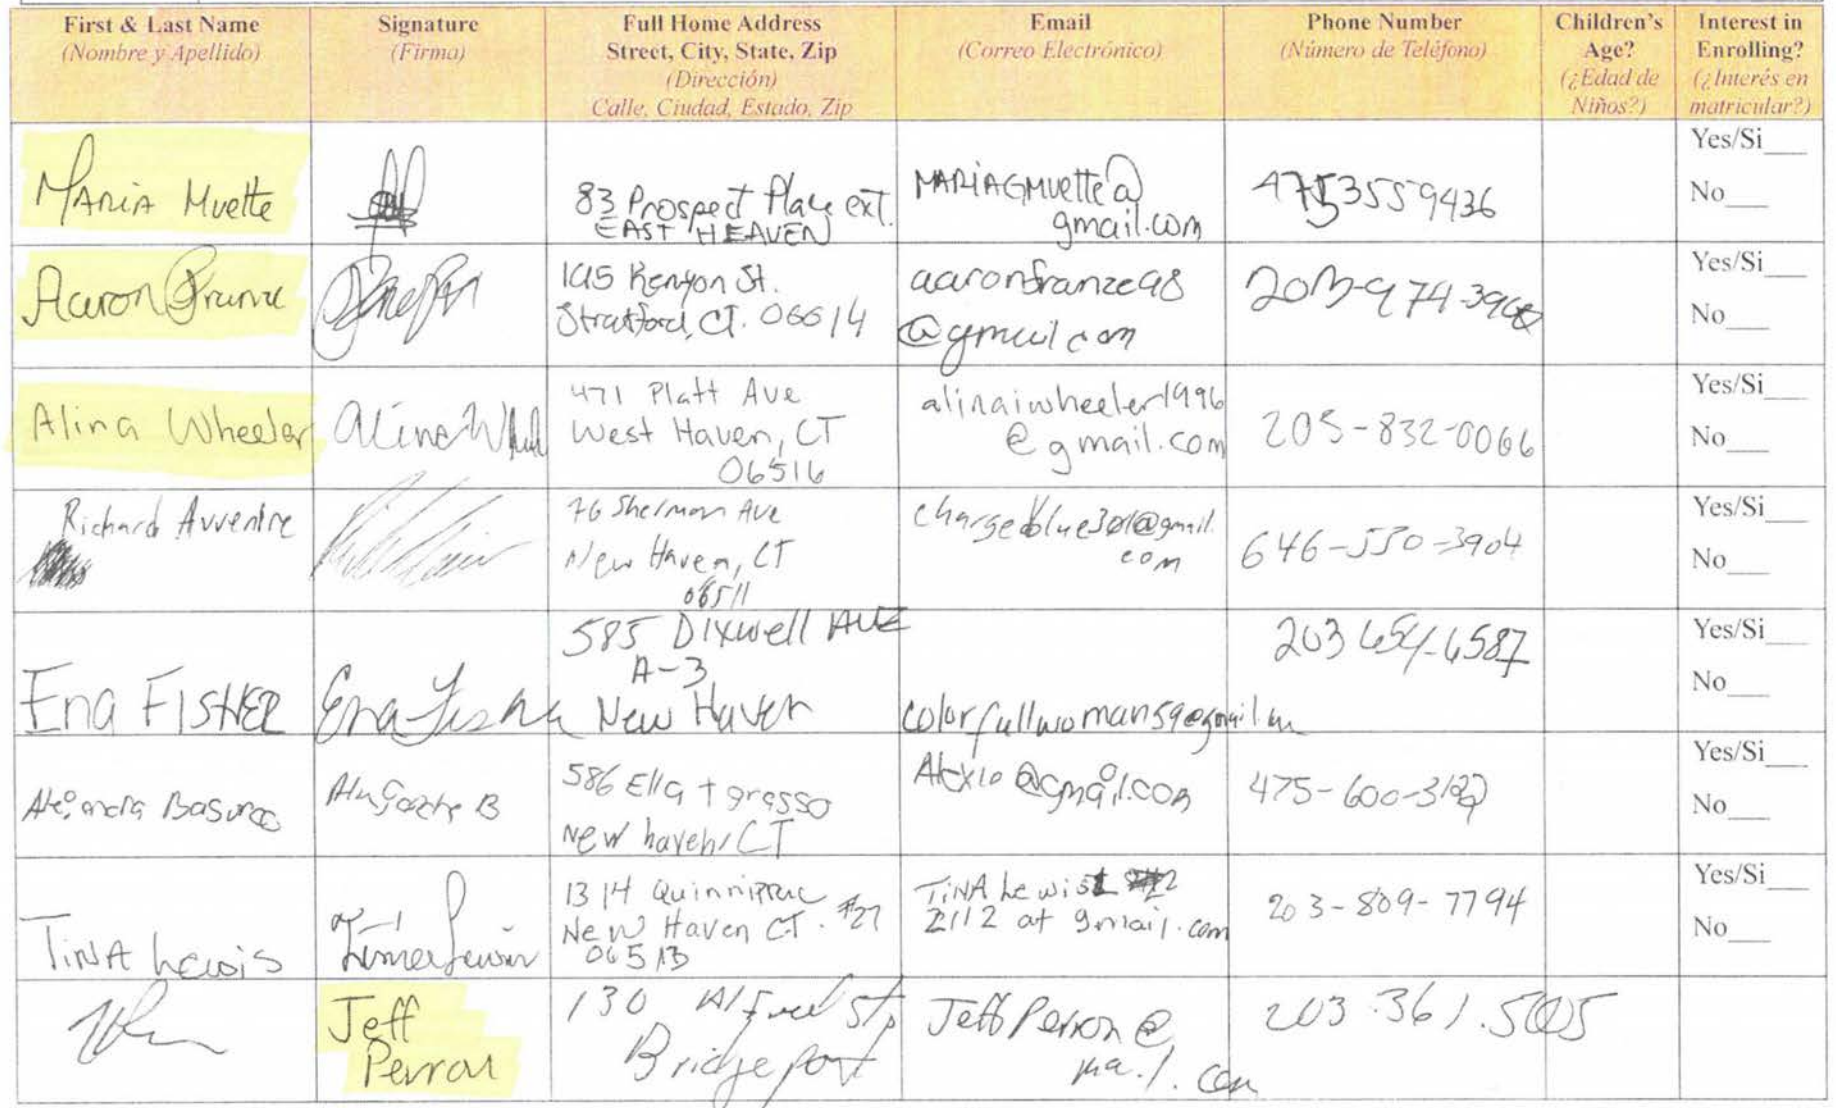 First & Last Name
(Nombre y Apellido)
Signature
(Firma)
Full Home Address
Street, City, State, Zip
(Dirección)
Calle, Ciudad, Estado, Zip
Email
(Correo Electrónico)
Phone Number
(Número de Teléfono)
Children's
Age?
(¿Edad de
Niños?)
Interest in
Enrolling?
(¿Interés en
matricular?)
MARIA Muette
83 Prospect Place ext.
EAST HEAVEN
MARIAGMuette@
gmail.com
4753559436
Yes/Si___
No___
Aaron
Kenyon St.
Stratford, CT. 06614
aaronfranze98
@gmail.com
Yes/Si___
No___
Alina Wheeler
471 Platt Ave
West Haven, CT
06516
alinaiwheeler1996
@gmail.com
203-832-0066
Yes/Si___
No___
Richard Avventire
76 Sherman Ave
New Haven, CT
06511
chargeblue301@gmail.
com
646-550-3904
Yes/Si___
No___
Ena FISHER
Ena Fisher
585 Dixwell AVE
A-3
New Haven
colorfullwoman59@gmail.
203 654-6587
Yes/Si___
No___
586 Ella t grasso
New haven, CT
@gmail.com
475-600-
Yes/Si___
No___
TiNA Lewis
1314 Quinnipiac
New Haven CT. #27
06513
TiNA Lewis
2112 at gmail.com
203-809-7794
Yes/Si___
No___
Jeff
Perron
130 Alfred St,
Bridgeport
Jeff Perron @
203.361.5005